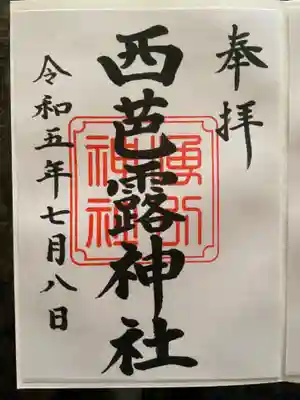 奉拝
西芭露神社
湧別
神社
令和五年七月八日